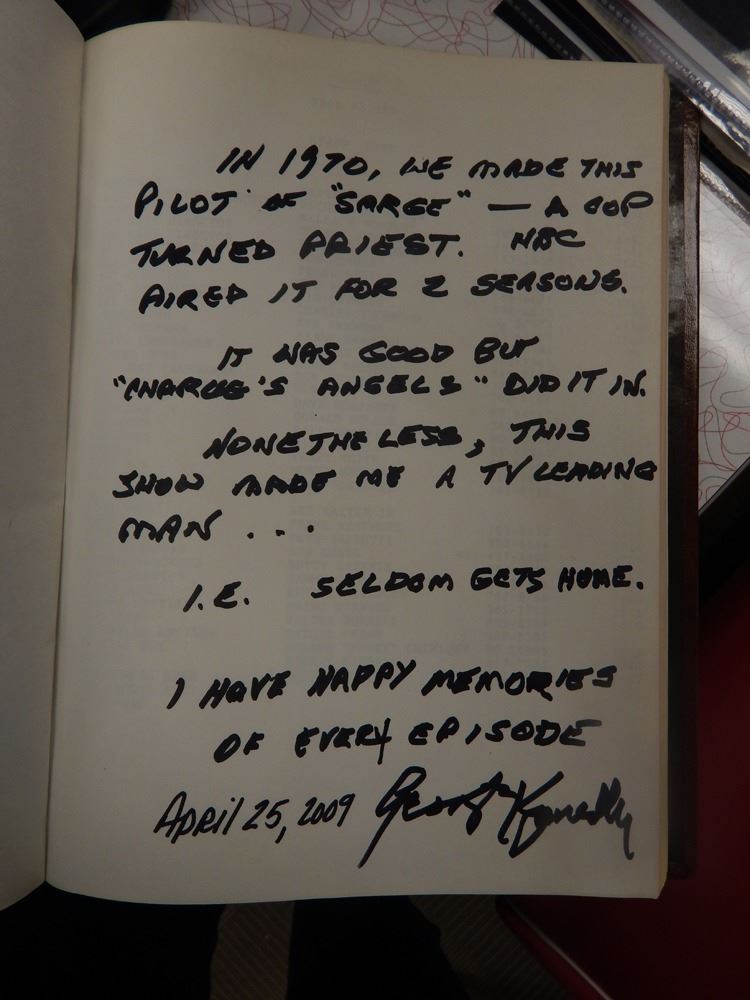 IN 1970, WE MADE THIS
PILOT OF "SARGE" — A COP
TURNED PRIEST. NBC
AIRED IT FOR 2 SEASONS.
IT WAS GOOD BUT
"CHARLIE'S ANGELS" DID IT IN.
NONETHELESS, THIS
SHOW MADE ME A TV LEADING
MAN . . .
I.E. SELDOM GETS HOME.
I HAVE HAPPY MEMORIES
OF EVERY EPISODE
April 25, 2009 George Kennedy